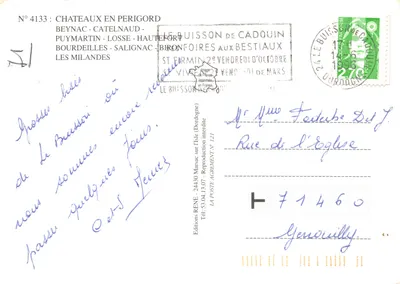 N° 4133 : CHATEAUX EN PERIGORD
BEYNAC - CATELNAUD -
PUYMARTIN - LOSSE - HAUTEFORT
BOURDEILLES - SALIGNAC - BIRON
LES MILANDES
LE BUISSON DE CADOUIN
FOIRES AUX BESTIAUX
VENDREDI D'OCTOBRE
LE BUISSON
24 LE BUISSON
DORDOGNE
Grosses bises
de Le Buisson où
nous sommes encore
passer quelques jours.
Editions RENE - 24430 Marsac sur l'Isle (Dordogne)
Tél. 53.04.13.07 - Reproduction interdite
LA POSTE AGREMENT N° 121
Mr Mme
Rue de l'Eglise
T 71460
Genouilly